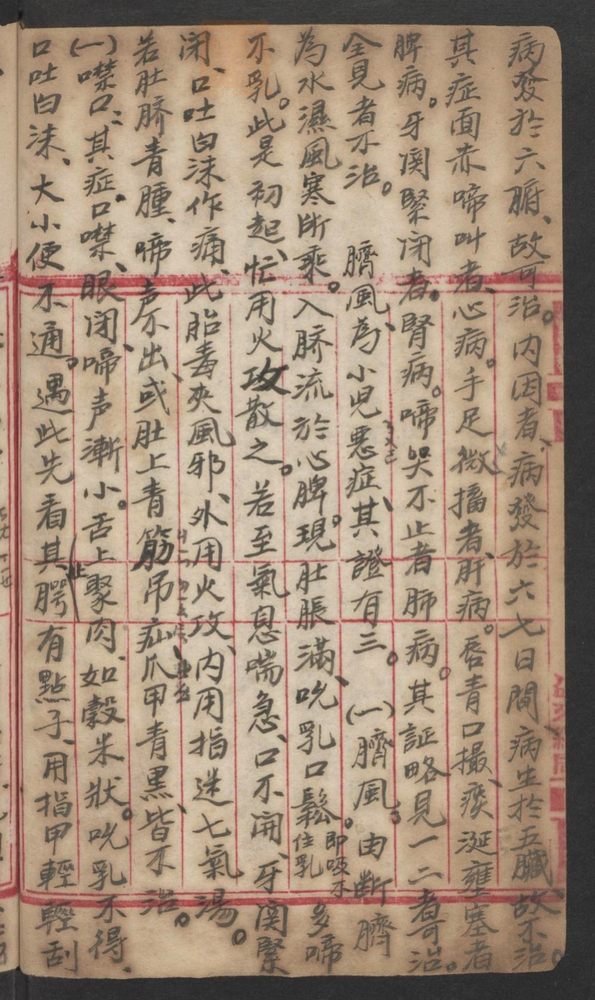 病發於六腑、故可治。內因者、病發於六七日間病生於五臟、故不治。
其症面赤啼叫者、心病。手足微搐者、肝病。唇青口撮、痰涎壅塞者
脾病。牙関緊闭者、腎病。啼哭不止者肺病。其証略見一二者可治。
全見者不治。　臍風為小児惡症、其證有三。㈠臍風。由断臍
為水濕風寒所乘。入臍流於心脾。現肚脹滿、吮乳口鬆即吸不住乳多啼
不乳。此是初起、忙用火攻散之。若至氣息喘急、口不開、牙関緊
闭、口吐白沫作痛、此胎毒夾風邪、外用火攻、内用指迷七氣湯。
若肚臍青腫、啼声不出、或肚上青筋吊疝爪甲青黑、皆不治。
㈠噤口、其症口噤、眼闭啼声漸小。舌上聚肉、如穀米狀。吮乳不得、
口吐白沫、大小便不通。遇此先看其上腭有點子、用指甲輕輕刮